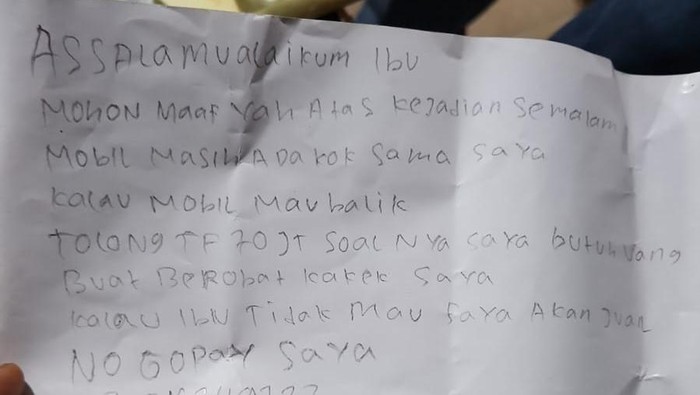 ASSALAMUALAIKUM IBU
MOHON MAAF YAH ATAS KEJADIAN SEMALAM
MOBIL MASIH ADA KOK SAMA SAYA
KALAU MOBIL MAU BALIK
TOLONG TF 70 JT SOALNYA SAYA BUTUH UANG
BUAT BEROBAT KAKEK SAYA
KALAU IBU TIDAK MAU SAYA AKAN JUAL
NO GOPAY SAYA